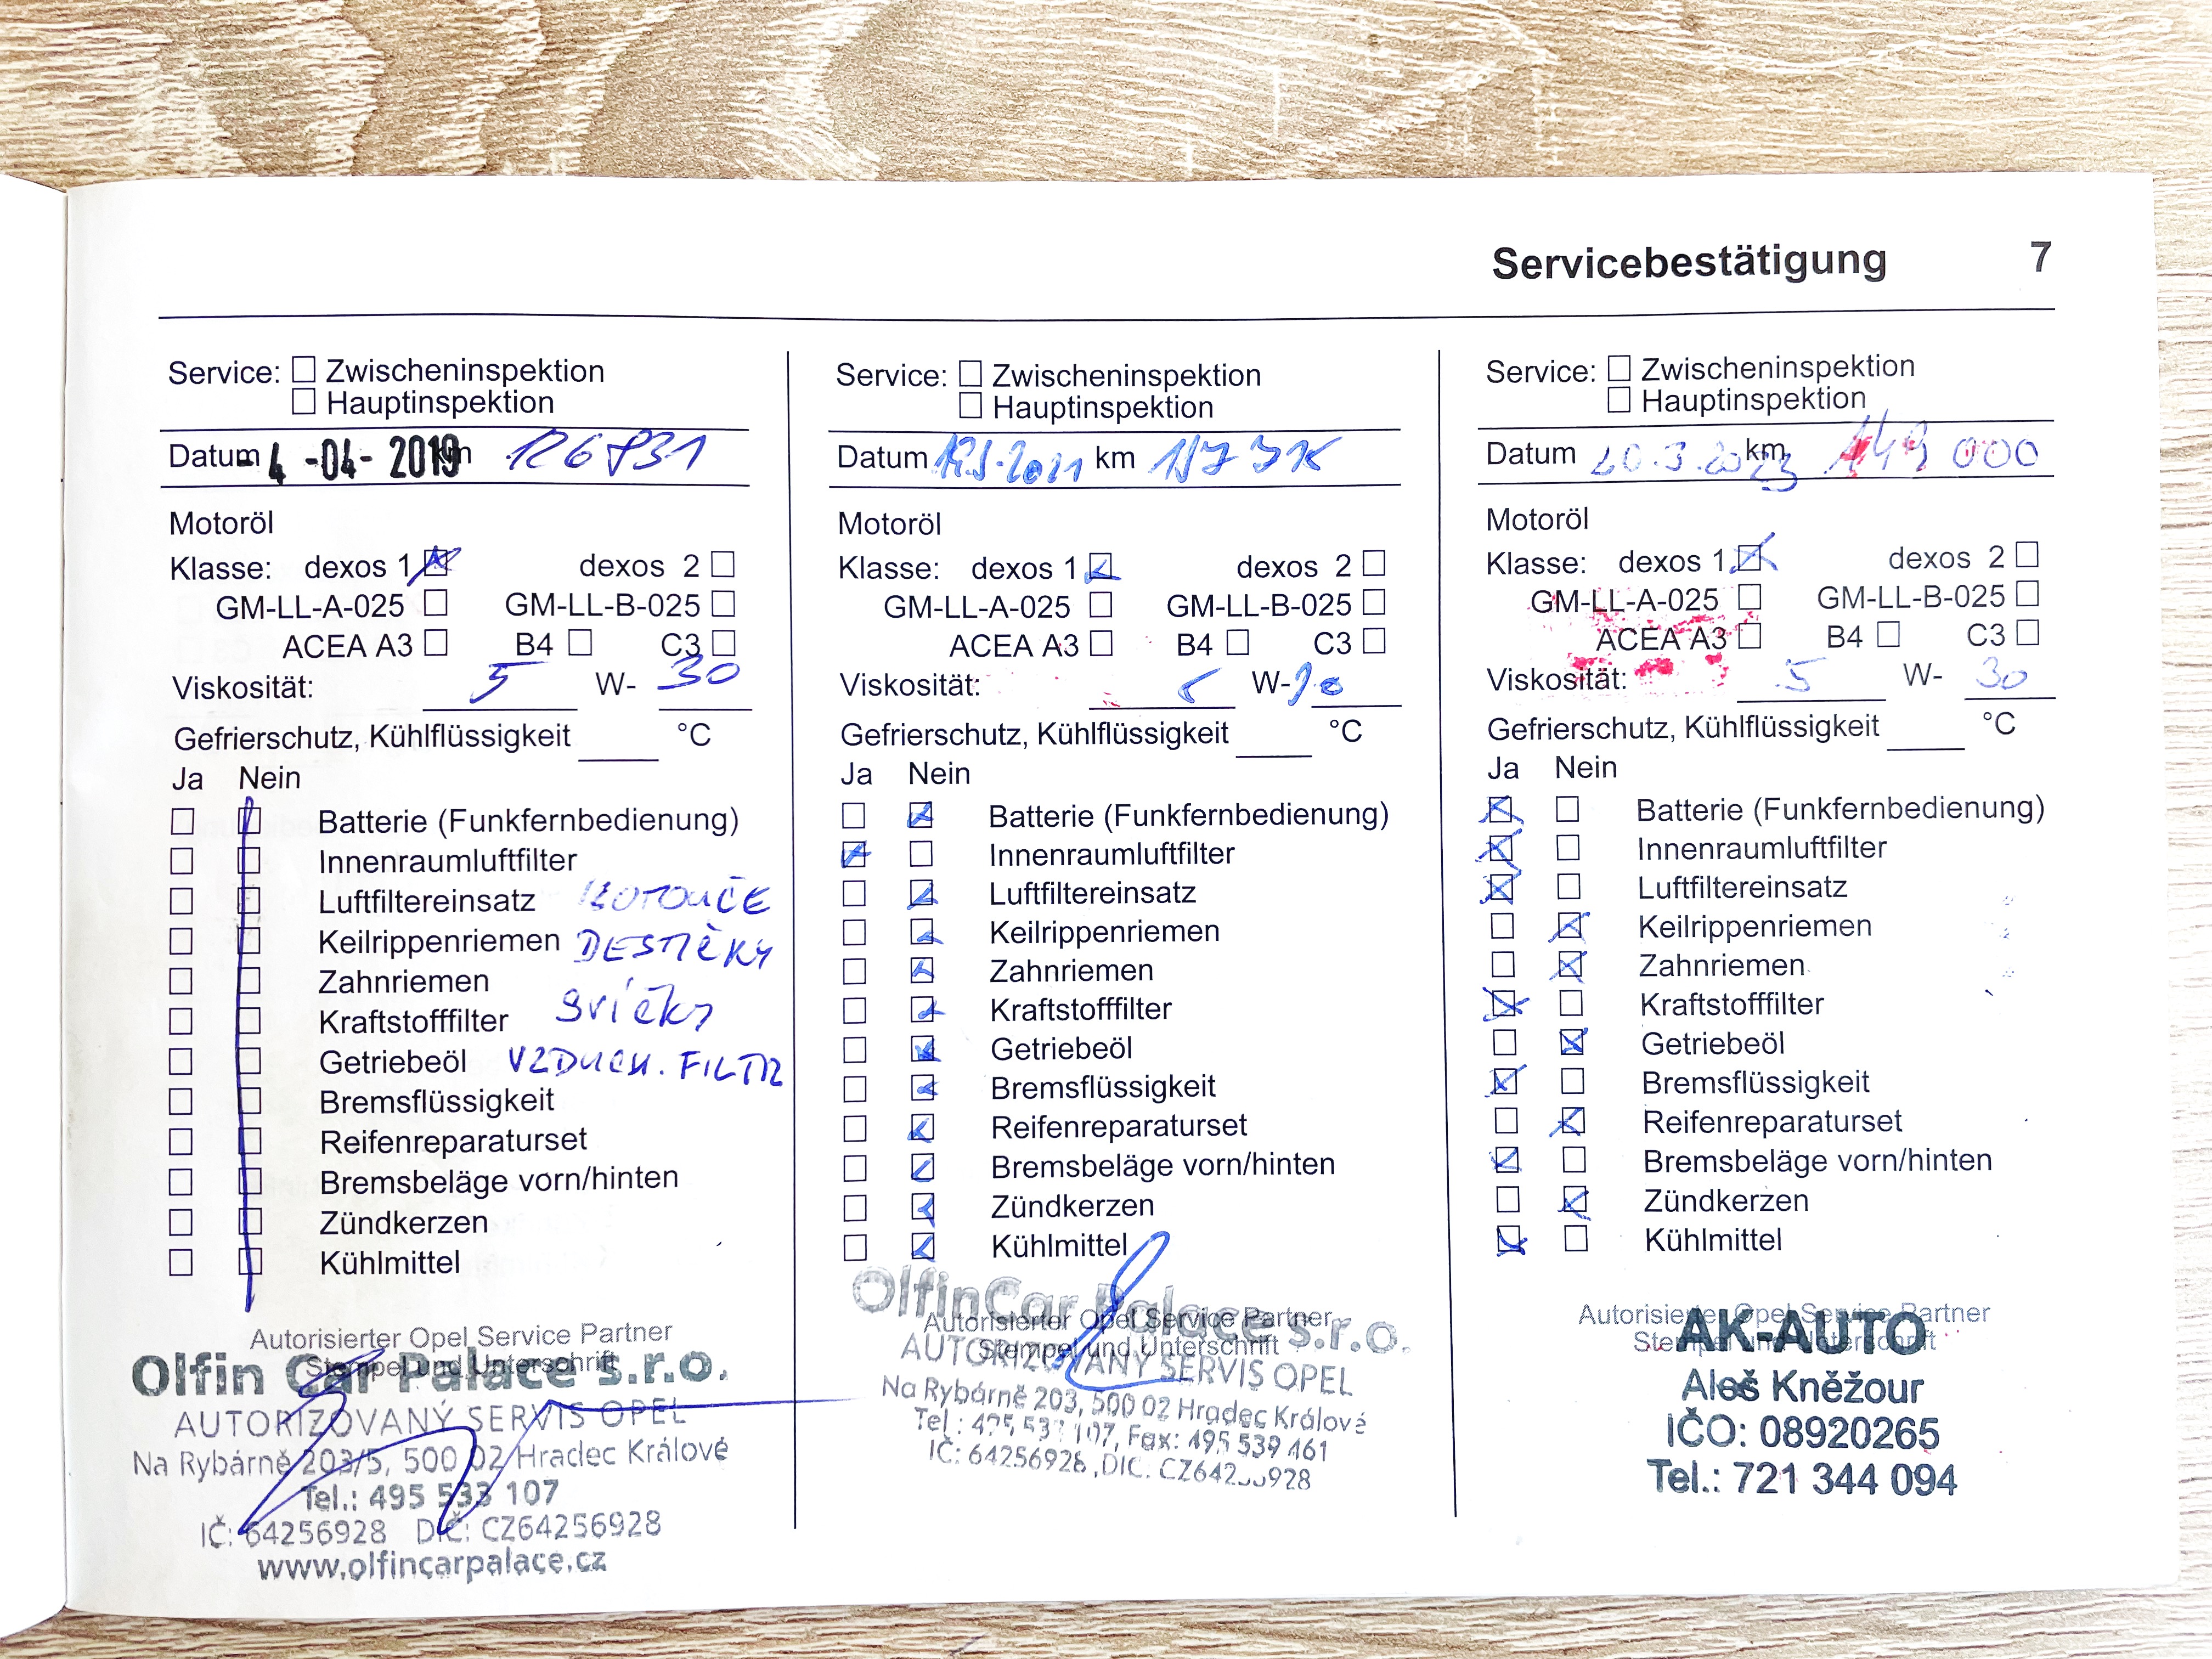 Servicebestätigung 7
Service: Zwischeninspektion
Hauptinspektion
Datum - 4 -04- 2019 km 126831
Motoröl
Klasse: dexos 1 dexos 2
GM-LL-A-025 GM-LL-B-025
ACEA A3 B4 C3
Viskosität: 5 W- 30
Gefrierschutz, Kühlflüssigkeit °C
Ja Nein
Batterie (Funkfernbedienung)
Innenraumluftfilter
Luftfiltereinsatz KOTOUČE
Keilrippenriemen DESTIČKY
Zahnriemen
Kraftstofffilter svíčky
Getriebeöl VZDUCH. FILTR
Bremsflüssigkeit
Reifenreparaturset
Bremsbeläge vorn/hinten
Zündkerzen
Kühlmittel
Autorisierter Opel Service Partner
Stempel und Unterschrift
Olfin Car Palace s.r.o.
AUTORIZOVANÝ SERVIS OPEL
Na Rybárně 203/5, 500 02 Hradec Králové
Tel.: 495 533 107
IČ: 64256928 DIČ: CZ64256928
www.olfincarpalace.cz
Service: Zwischeninspektion
Hauptinspektion
Datum km
Motoröl
Klasse: dexos 1 dexos 2
GM-LL-A-025 GM-LL-B-025
ACEA A3 B4 C3
Viskosität: W-
Gefrierschutz, Kühlflüssigkeit °C
Ja Nein
Batterie (Funkfernbedienung)
Innenraumluftfilter
Luftfiltereinsatz
Keilrippenriemen
Zahnriemen
Kraftstofffilter
Getriebeöl
Bremsflüssigkeit
Reifenreparaturset
Bremsbeläge vorn/hinten
Zündkerzen
Kühlmittel
OlfinCar Palace s.r.o.
Autorisierter Opel Service Partner
Stempel und Unterschrift
AUTORIZOVANÝ SERVIS OPEL
Na Rybárně 203, 500 02 Hradec Králové
Tel.: 495 533 107, Fax: 495 539 461
IČ: 64256928, DIČ:
Service: Zwischeninspektion
Hauptinspektion
Datum 20.3.2023 km 149 000
Motoröl
Klasse: dexos 1 dexos 2
GM-LL-A-025 GM-LL-B-025
ACEA A3 B4 C3
Viskosität: 5 W- 30
Gefrierschutz, Kühlflüssigkeit °C
Ja Nein
Batterie (Funkfernbedienung)
Innenraumluftfilter
Luftfiltereinsatz
Keilrippenriemen
Zahnriemen
Kraftstofffilter
Getriebeöl
Bremsflüssigkeit
Reifenreparaturset
Bremsbeläge vorn/hinten
Zündkerzen
Kühlmittel
Autorisierter Opel Service Partner
Stempel und Unterschrift
AK-AUTO
Aleš Kněžour
IČO: 08920265
Tel.: 721 344 094